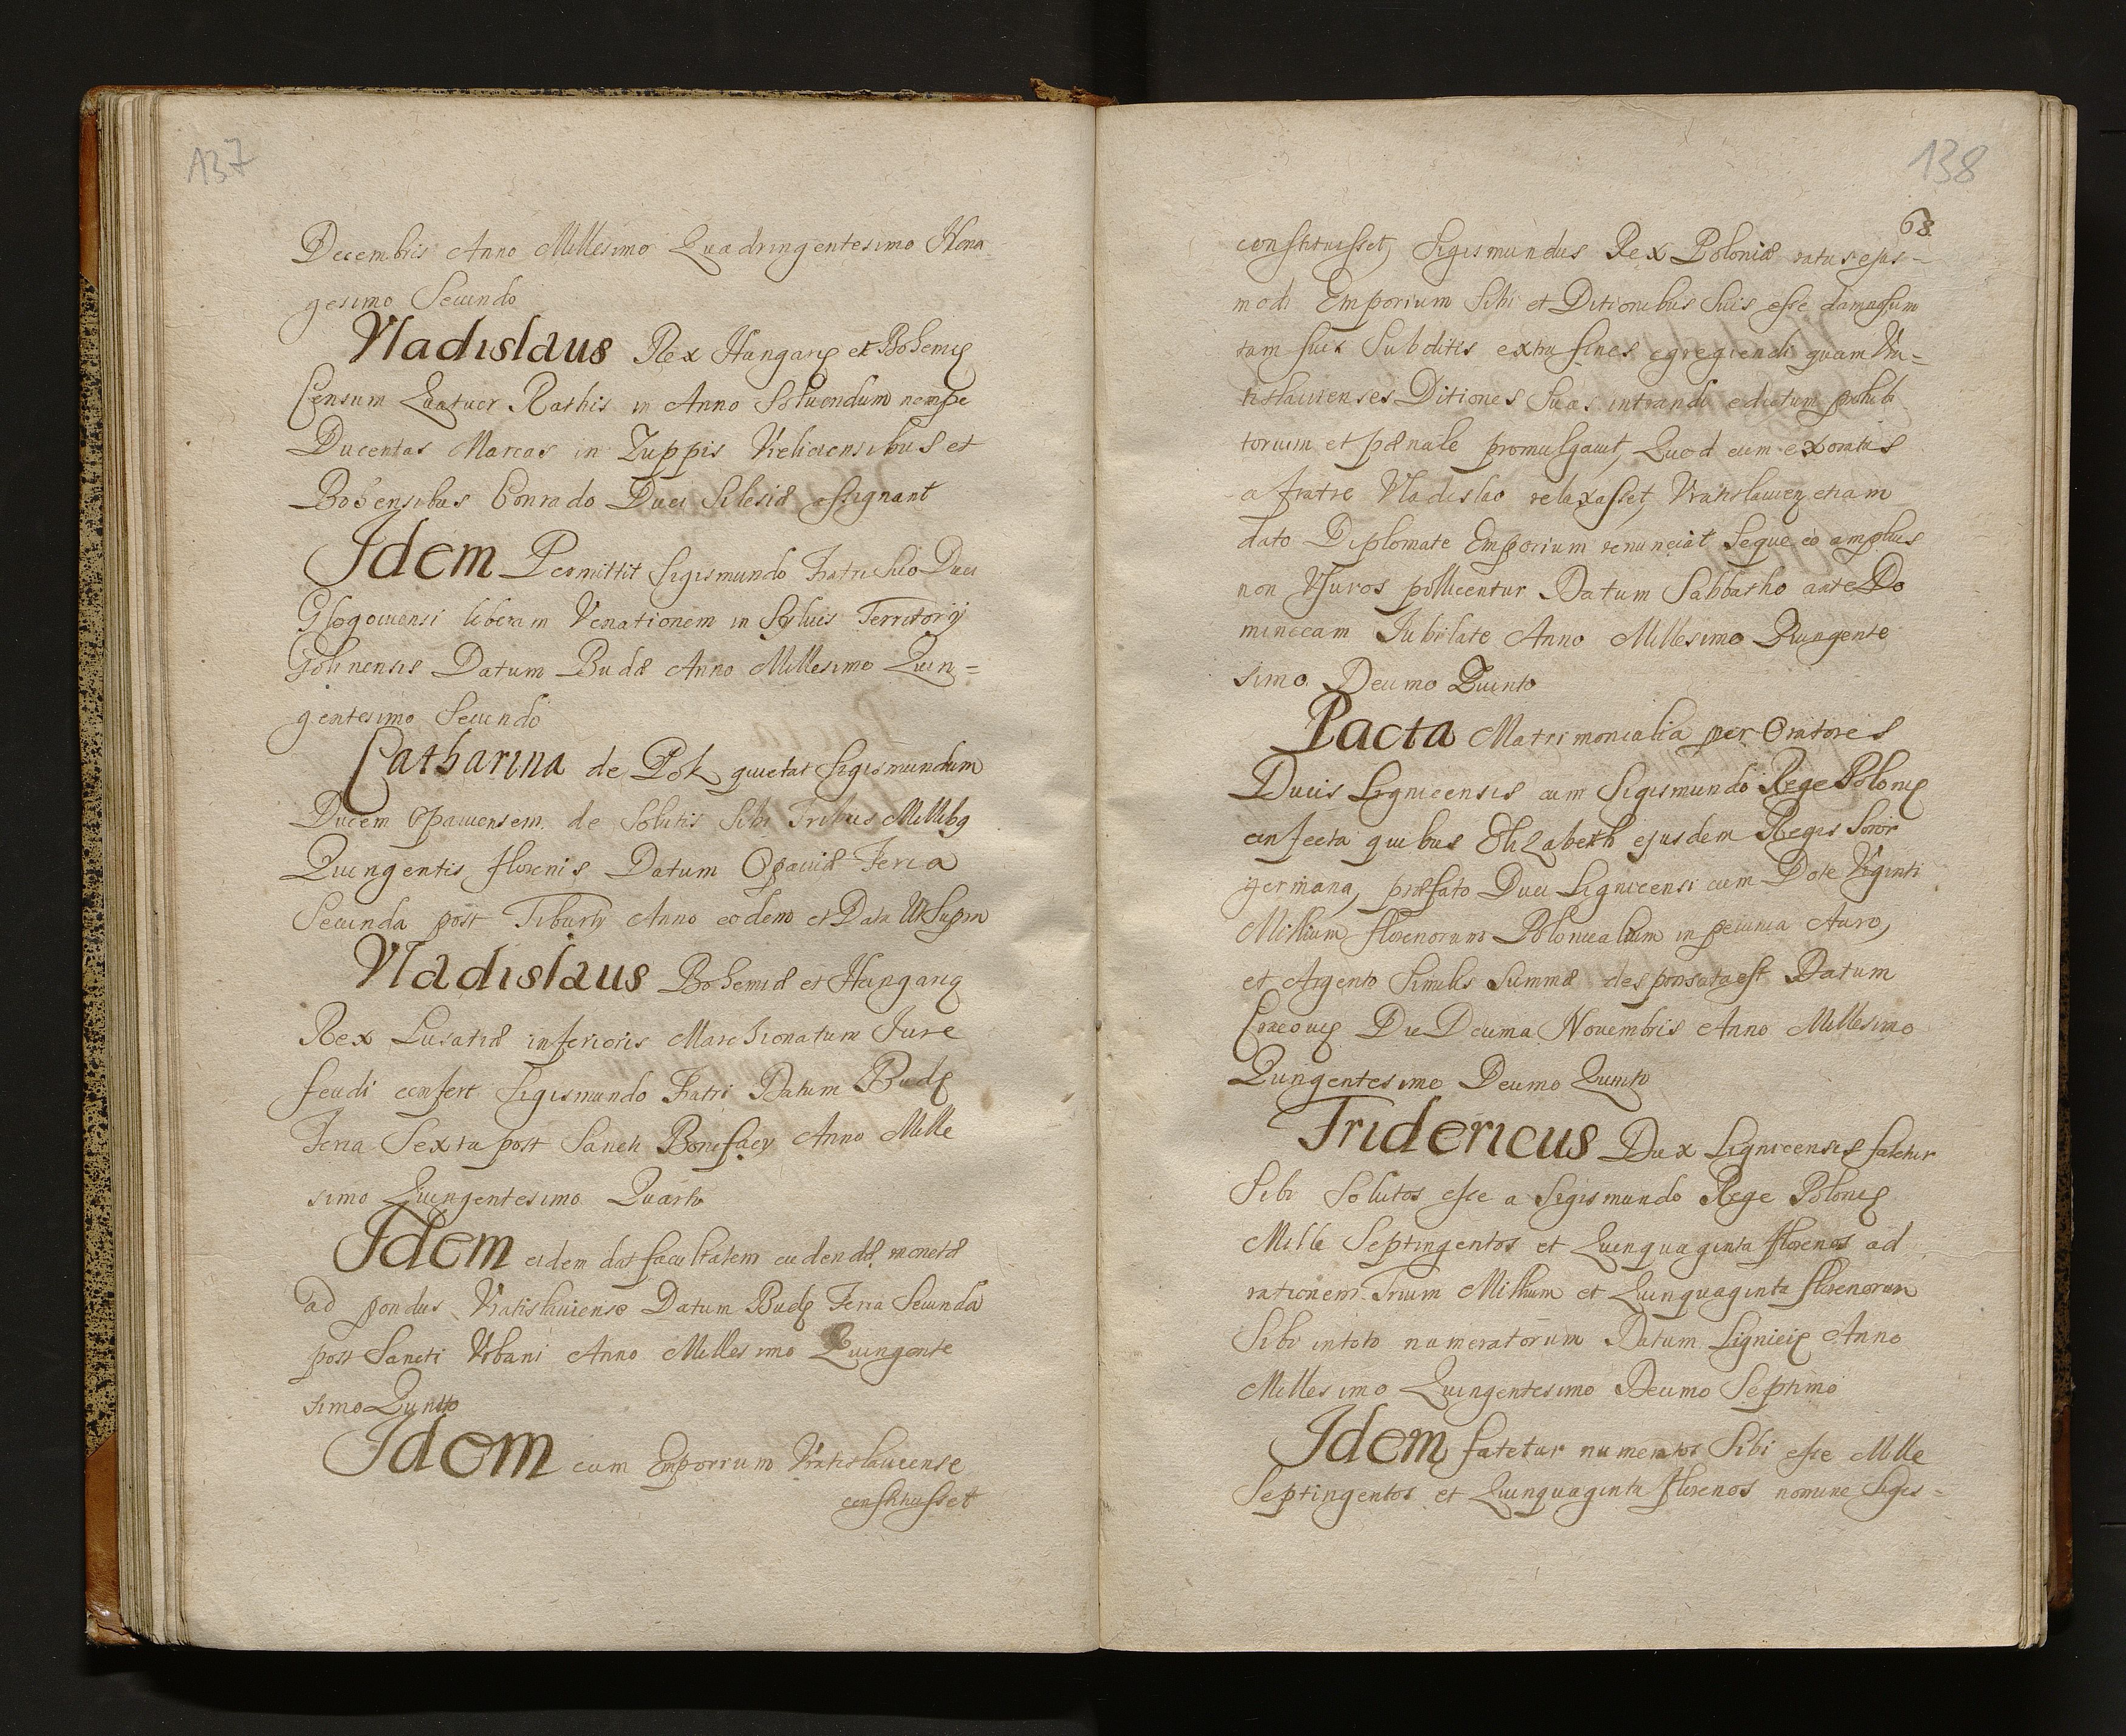 137
Decembris Anno Millesimo Quadringentesimo Nona-
gesimo Secundo
Vladislaus Rex Hungarię et Bohemię
Censum Quatuor Rathis in Anno Soluendum nempe
Ducentas Marcas in Zuppis Vieliciensibus et
Bohensibus Conrado Duci Silesiæ assignant
Idem Permittit Sigismundo Fratri Suo Duci
Glogouiensi liberam Venationem in Syluis Territorij
Golinensis Datum Budæ Anno Millesimo Quin=
gentesimo Secundo
Catharina de Pok quietat Sigismundum
Ducem Opauiensem de Solutis Sibi Tribus Millibq
Quingentis florenis Datum Opauiæ Feria
Secunda post Tiburtij Anno eodem et Data Ut Supra
Vladislaus Bohemiæ et Hungarię
Rex Lusatiæ inferioris Marchionatum Jure
feudi confert Sigismundo Fratri Datum Budę
Feria Sexta post Sancti Bonifacij Anno Mille
simo Quingentesimo Quarto
Idem eidem dat facultatem cudendæ monetæ
ad pondus Vratislauiense Datum Budę Feria Secunda
post Sancti Urbani Anno Millesimo Quingente
simo Quinto
Idem cum Emporium Vratislauiense
constituisset
138
68
constituisset, Sigismundus Rex Poloniæ ratus ejus-
modi Emporium Sibi et Ditionibus Suis esse damnosum
tam suis Subditis extra fines egregiendi quam Vra=
tislauienses Ditiones Suas intrandi edictum prohibi
torium et pænale promulgauit, Quod cum exoratus
a fratre Vladislao relaxasset, Vratislauien etiam
dato Diplomate Emporium renunciat Seque eò amplius
non Usuros pollicentur Datum Sabbatho ante Do
minicam Jubilate Anno Millesimo Quingente
simo Decimo Quinto
Pacta Matrimonialia per Oratores
Ducis Lignicensis cum Sigismundo Rege Polonię
confecta quibus Elizabeth ejusdem Regis Soror
germana, præfato Duci Lignicensi cum Dote Viginti
Millium florenorum Polonicalium in pecunia Auro,
et Argento Similis Summæ desponsata est Datum
Cracouię Die Decima Nouembris Anno Millesimo
Quingentesimo Decimo Quinto
Fridericus Dux Lignicensis fatetur
Sibi Solutos esse a Sigismundo Rege Polonię
Mille Septingentos et Quinquaginta florenos ad
rationem Trium Millium et Quinquaginta florenorum
Sibi in toto numeratorum Datum Lignicię Anno
Millesimo Quingentesimo Decimo Septimo
Idem fatetur numeratos Sibi esse Mille
Septingentos et Quinquaginta florenos nomine Sigis-